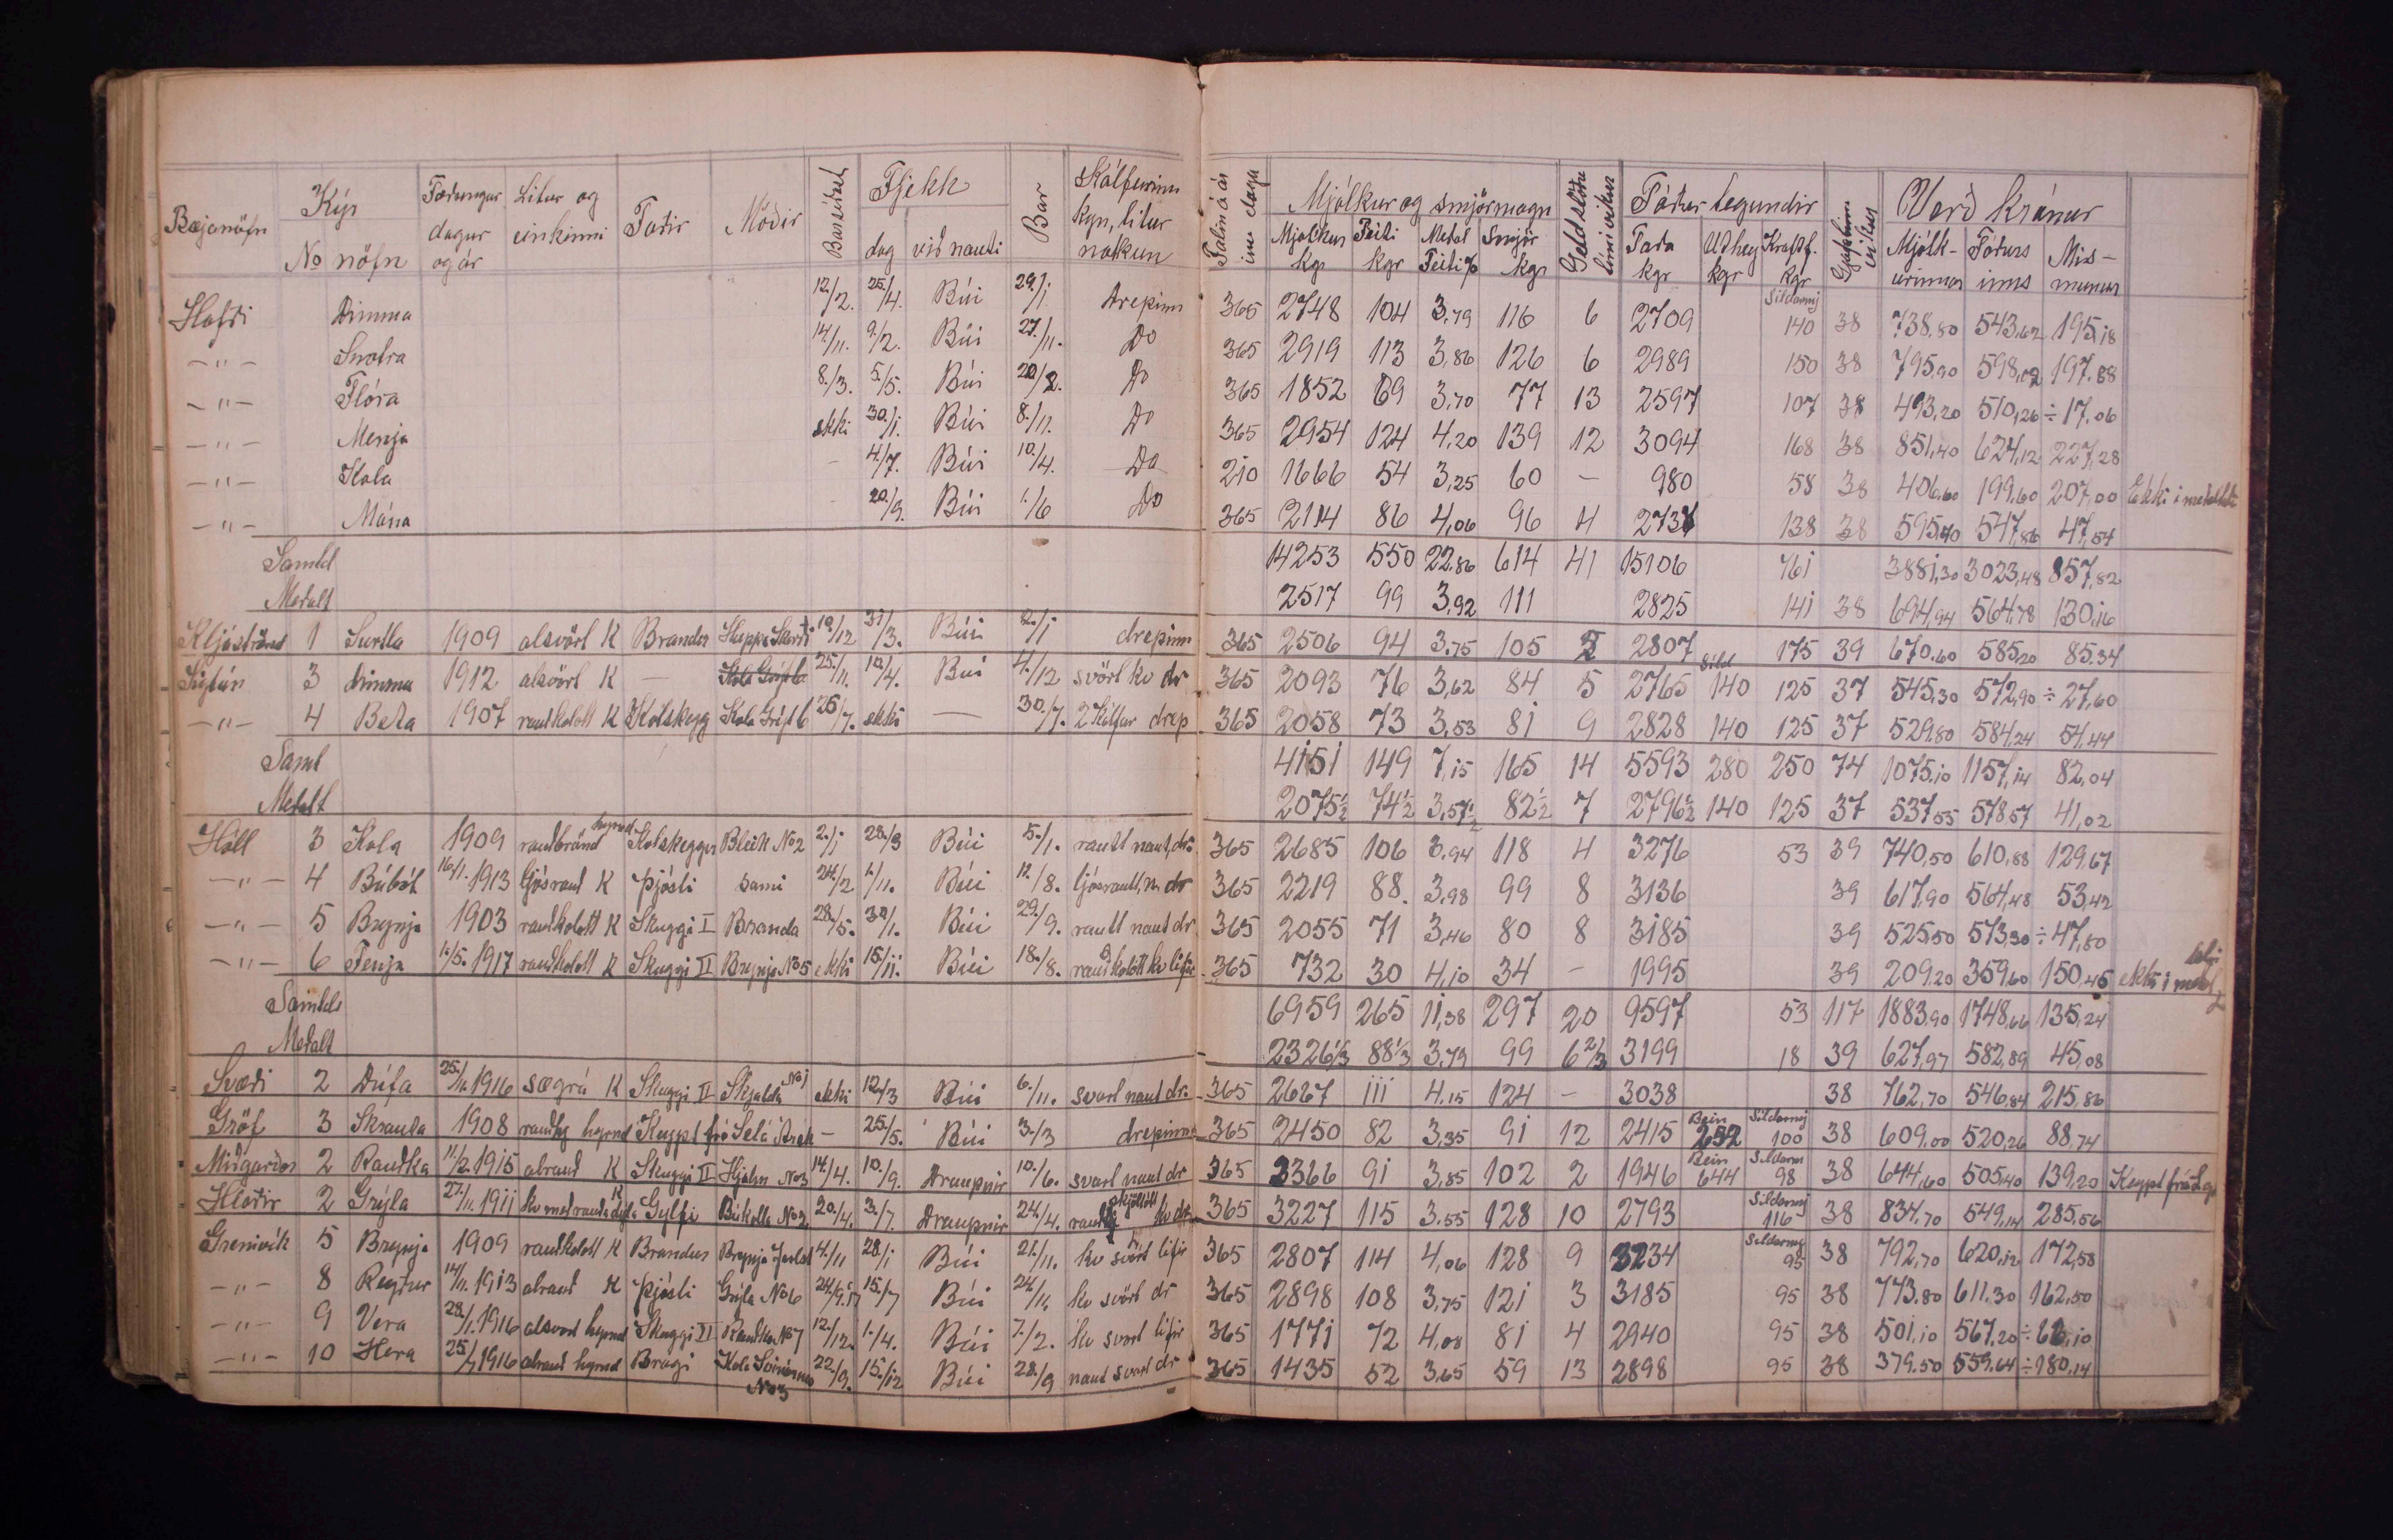 Bæjanöfn Kýr No nöfn Fæðingar dagur og ár Litur og einkinni Faðir Móðir Bar síðast Fjekk dag við nauti Bar Kálfurinn kyn, litur nokkun Talin á ár inu daga Mjólkur og smjörmagn Mjólkur kgr Feiti kgr Meðal Feiti % Smjör kgr Geldstöðu tími vikur Fóður tegundir Taða kgr Úthey kgr Kraftf. kgr Gjafatími vikur Verð krónur Mjólkurinnar Fóðurs ins Mismunur
Höfði Dimma 12/2. 25/4. Búi 29/1. drepinn 365 2748 104 3,79 116 6 2709 Síldarmj 140 38 738,80 543,62 195,18
-"- Snotra 14/11. 9/2. Búi 27/11. Do 365 2919 113 3,86 126 6 2989 150 38 795,90 598,02 197,88
-"- Flóra 8./3. 5/5. Búi 20/2. Do 365 1852 69 3,70 77 13 2597 107 38 493,20 510,26 ÷ 17,06
-"- Menja ekki 30/1. Búi 8./11. Do 365 2954 124 4,20 139 12 3094 168 38 851,40 624,12 227,28
-"- Kola - 4/7. Búi 10./4. Do 210 1666 54 3,25 60 - 980 58 38 406,60 199,60 207,00 Ekki í meðaltali
-"- Mána - 20./9. Búi 1./6 Do 365 2114 86 4,06 96 4 2737 138 38 595,40 547,86 47,54
Samtal 14253 550 22,86 614 41 15106 761 3881,30 3023,48 857,82
Meðalt 2517 99 3,92 111 2825 141 38 694,94 564,78 130,16
Kljáströnd 1 Surtla 1909 alsvört K Brandur 10./12 31/3. Búi 2./1 drepinn 365 2506 94 3,75 105 2 2807 175 39 670,60 585,20 85,34
Sigtún 3 Dimma 1912 alsvört K — 25./11. 10./4. Búi 4./12 svört kv dr 365 2093 76 3,62 84 5 2765 Síld 140 125 37 545,30 572,90 ÷ 27,60
-"- 4 Beta 1907 rauðkolótt K Kolskegg Kola Grýt 6 26/7. ekki — 30./7. 2 Kálfar drep 365 2058 73 3,53 81 9 2828 140 125 37 529,80 584,24 54,44
Samt 4151 149 7,15 165 14 5593 280 250 74 1075,10 1157,14 82,04
Meðalt 2075½ 74½ 3,57½ 82½ 7 2796½ 140 125 37 537,55 578,57 41,02
Höll 3 Kola 1909 rauðbrönd hyrnd Kolskeggur Bleik No 2 2./1 28./3 Búi 5./1. rautt naut, dr. 365 2685 106 3,94 118 4 3276 53 39 740,50 610,88 129,67
-"- 4 Búbót 16/1. 1913 ljósrauð K Þjósti sami 24./2 1./11. Búi 12./8. ljósrautt, n. dr 365 2219 88. 3,98 99 8 3136 39 617,90 564,48 53,42
-"- 5 Brynja 1903 rauðkolótt K Skuggi I Branda 28./5. 30/1. Búi 29./9. rautt naut dr 365 2055 71 3,46 80 8 3185 39 525,50 573,30 ÷ 47,80
-"- 6 Fenja 1./5. 1917 rauðkolótt K Skuggi II Brynja No 5 ekki 15./11. Búi 18./8. rauðkolótt kv lifir 365 732 30 4,10 34 - 1995 39 209,20 359,60 150,45 ekki í meðal tali
Samtals 6959 265 11,38 297 20 9597 53 117 1883,90 1748,66 135,24
Meðalt 2326⅓ 88⅓ 3,79 99 6⅔ 3199 18 39 627,97 582,89 45,08
Svæði 2 Dúfa 25./11. 1916 sægrá K Skuggi II Skjalda No 1 ekki 12./3 Búi 6./11. svart naut dr. 365 2667 111 4,15 124 - 3038 38 762,70 546,84 215,86
Gröf 3 Skrauta 1908 hyrnd Keypt frá Selá Ársk - 25./5. Búi 3./3 drepinn 365 2450 82 3,35 91 12 2415 Bein 252 Síldarmj 100 38 609,00 520,26 88,74
Miðgarðar 2 Rauðka 11./2. 1915 alrauð K Skuggi II Hjálm No 3 14./4. 10./9. Draupnir 10./6. svart naut dr 365 2366 91 3,85 102 2 1946 Bein 644 Síldarm 98 38 644,60 505,40 139,20 Keypt frá
Hlaðir 2 Grýla 27./11. 1911 Gylfi Búkolla No 2 20./4. 3./7. Draupnir 24./4. kv dr 365 3227 115 3,55 128 10 2793 Síldarmj 116 38 834,70 549,14 285,56
Grenivík 5 Brynja 1909 rauðkolótt K Brandur Brynja 4./11 28/1 Búi 21./11. kv svört lifir 365 2807 114 4,06 128 9 3234 Síldarmj 95 38 792,70 620,12 172,58
-"- 8 Reyður 14/11. 1913 alrauð K Þjósti Grýla No 6 24./9. 17 15./7 Búi 24./11. kv svört dr 365 2898 108 3,75 121 3 3185 95 38 773,80 611,30 162,50
-"- 9 Vera 28./1. 1916 alsvört hyrnd Skuggi II Rauðka No 7 12./12. 1./4. Búi 7./2. kv svört lifir 365 1771 72 4,08 81 4 2940 95 38 501,10 567,20 ÷ 66,10
-"- 10 Hera 25./1 1916 alrauð hyrnd Bragi Kola No 3 22./9. 15./12 Búi 28./9 naut svart dr 365 1435 52 3,65 59 13 2898 95 38 379,50 559,64 ÷ 180,14